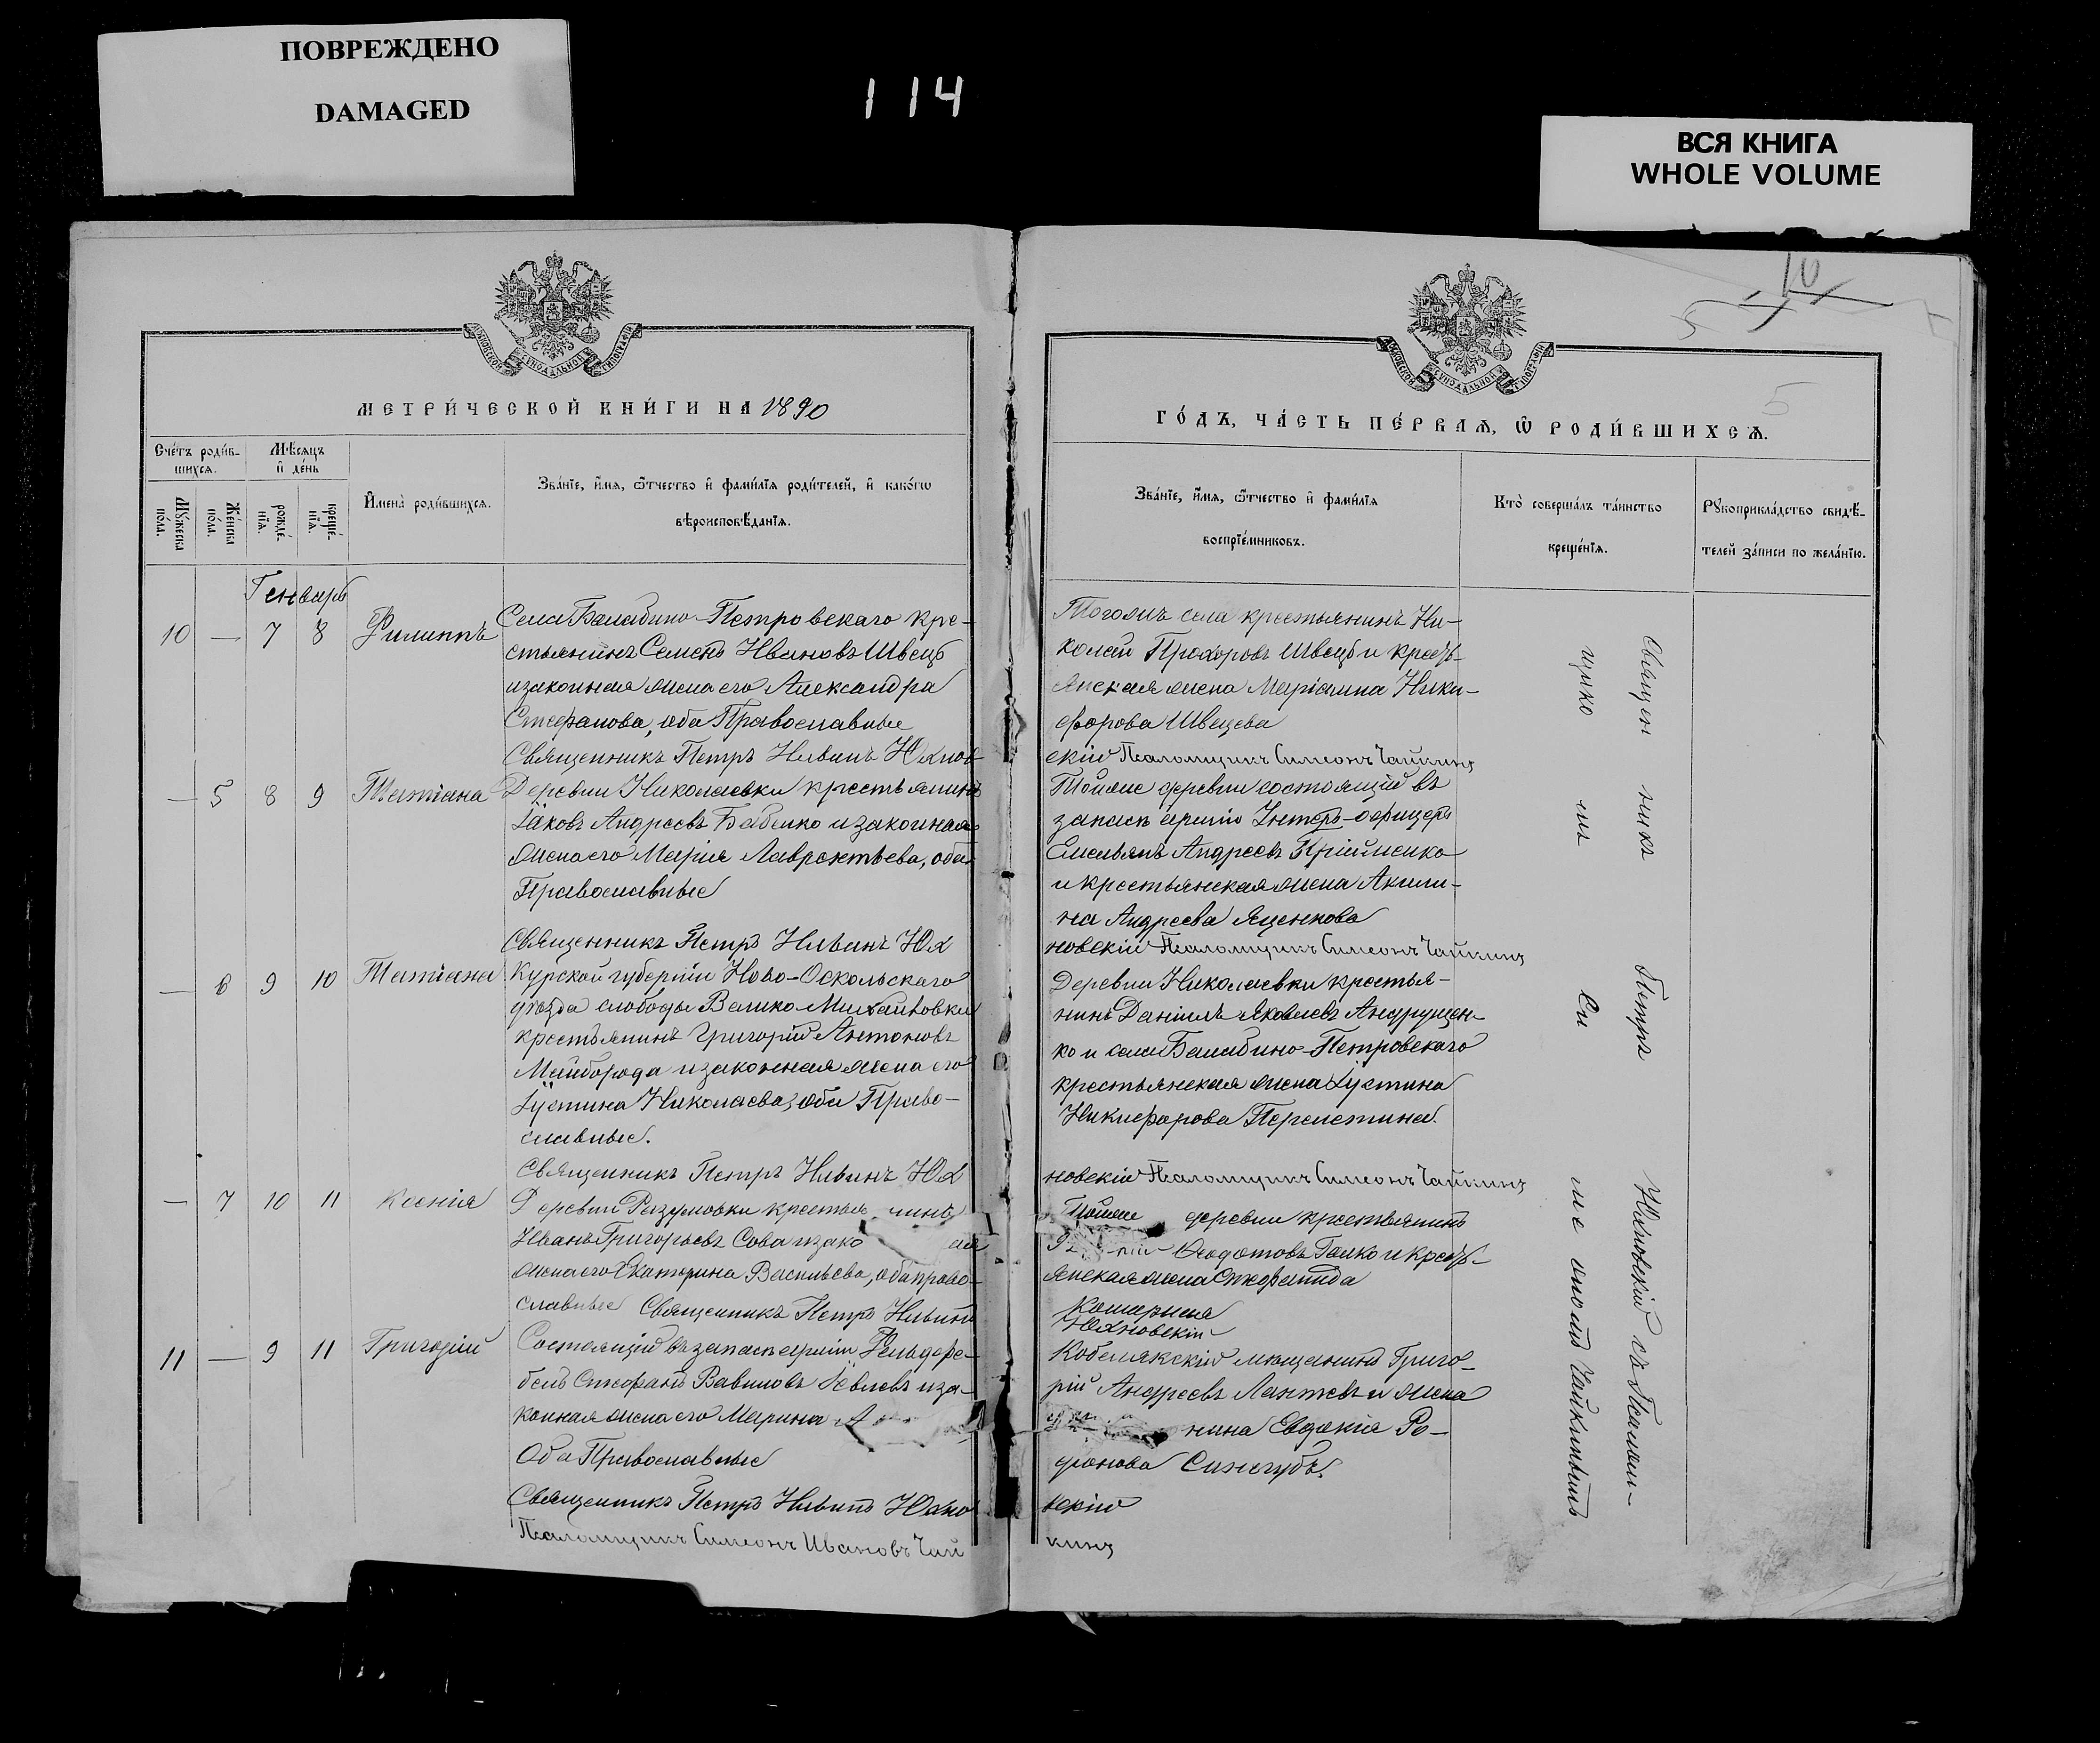 ПОВРЕЖДЕНО
DAMAGED
114
ВСЯ КНИГА
WHOLE VOLUME
МЕТРИ́ЧЕСКОЙ КНИ́ГИ НА 1890
Сче́тъ роди́в-
шихсѧ.
Мѣ́сѧцъ
и҆ де́нь
Мꙋ́жеска
по́ла.
Же́нска
по́ла.
рожде́-
нїѧ.
креще́-
нїѧ.
И҆мена̀ роди́вшихсѧ.
Зва́нїе, и҆́мѧ, ѻ҆́тчество и҆ фами́лїѧ роди́телей, и҆ како́гѡ
вѣроисповѣ́данїѧ.
Генварь
10 — 7 8 Филиппъ
Села Балабино-Петровскаго кре-
стьянинъ Семенъ Ивановъ Швецъ
и законная жена его Александра
Стефанова, оба Православные
Священникъ Петръ Ильинъ Юхнов
— 5 8 9 Татіана
Деревни Николаевки крестьянинъ
Іаковъ Андреевъ Бабенко и законная
жена его Марія Лаврентьева, оба
Православные
Священникъ Петръ Ильинъ Юх
— 6 9 10 Татіана
Курской губерніи Ново-Оскольскаго
уѣзда слободы Велико-Михайловки
крестьянинъ Григорій Антоновъ
Майборода и законная жена его
Іустина Николаева, оба Право-
славные.
Священникъ Петръ Ильинъ Юх
— 7 10 11 Ксенія
Деревни Разумовки крестья нинъ
Иванъ Григорьевъ Сова и зако ая
жена его Екатерина Васильева, оба право-
славные Священникъ Петръ Ильинъ
11 — 9 11 Григорій
Состоящій въ запасѣ арміи Фельдфе-
бель Стефанъ Вавиловъ Іевлевъ и за-
конная жена его Марина А
Оба Православные
Священникъ Петръ Ильинъ Юхно
Псаломщикъ Симеонъ Ивановъ Чай
ГО́ДЪ, ЧА́СТЬ ПЕ́РВАѦ, Ѡ҆ РОДИ́ВШИХСѦ.
5
10
5
Зва́нїе, и҆́мѧ, ѻ҆́тчество и҆ фами́лїѧ
воспрїе́мниковъ.
Кто̀ соверша́лъ та́инство
креще́нїѧ.
Рꙋкоприкла́дство свидѣ́-
телей за́писи по жела́нїю.
Тогожъ села крестьянинъ Ни-
колай Прохоровъ Швецъ и кресть-
янская жена Маріанна Ники-
форова Швецева
скій Псаломщикъ Симеонъ Чайкинъ
Тойже деревни состоящій въ
запасѣ арміи Унтеръ-офицеръ
Емельянъ Андреевъ Прійменко
и крестьянская жена Акили-
на Андреева Яценкова
новскій Псаломщикъ Симеонъ Чайкинъ
Деревни Николаевки крестья-
нинъ Даніилъ Яковлевъ Андрущен-
ко и села Балабино-Петровскаго
крестьянская жена Іустина
Никифорова Перспетина.
новскій Псаломщикъ Симеонъ Чайкинъ
Тойже деревни крестьянинъ
Ѳеодотовъ Галко и кресть-
янская жена Стефанида
Кошарная
Юхновскій
Кобелякскій мѣщанинъ Григо-
рій Андреевъ Лаптевъ и жена
нина Евдокія Ро-
діонова Синегубъ.
скій
кинъ
Священ никъ Петръ Юхновскій съ Псалом-
щико мъ Си ме ономъ Чайкинымъ